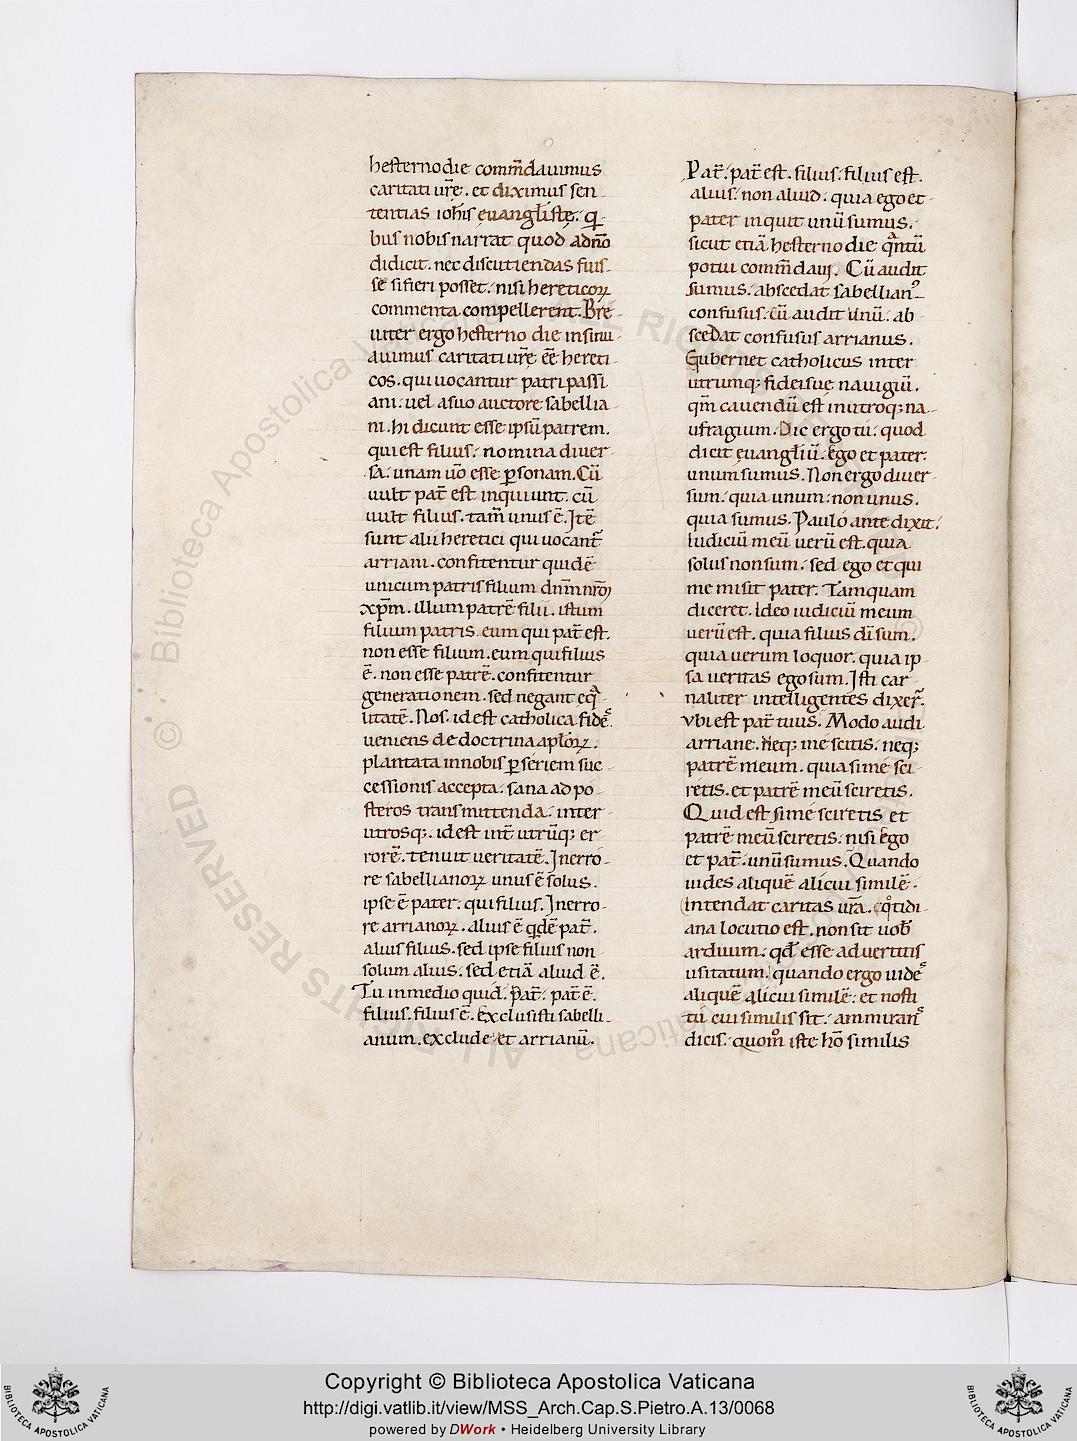 hesterno die com̄dauimus
caritati ur̄ę. et diximus sen
tentias ioh̄is euangl̄istę. q̄i
bus nobis narrat quod adn̄o
didicit. nec discutiendas fuis-
se si fieri posset. nisi hereticoꝝ
commenta compellerent. Bre-
uiter ergo hesterno die insinu-
auimus caritati ur̄ę. eē hereti
cos. qui uocantur patripassi
ani. uel a suo auctore sabellia-
ni. hi dicunt esse ipsū patrem.
qui est filius. nomina diuer-
sa. unam uo esse ꝑsonam. Cū
uult pat̄ est inquiunt. cū
uult filius. tam̄ unus ē. Itē
sunt alii heretici qui uocant̄
arriani. confitentur quidē
unicum patris filium dn̄m nr̄m
xp̄m. illium patrē filii. istum
filium patris. eum qui pat̄ est.
non esse filium. eum qui filius
ē. non esse patrē. confitentur
generationem. sed negant eq̄a-
litatē. Nos. id est catholica fides
ueniens de doctrina apl̄oꝝ.
plantata in nobis ꝑ seriem suc-
cessionis accepta. sana ad po-
steros transmittenda. inter
utrosq;. id est int̄ utrūq; er-
rorē. tenuit ueritatē. In erro-
re sabellianoꝝ unus ē solus.
ipse ē pater. qui filius. In erro-
re arrianoꝝ. alius ē qdē pat̄.
alius filius. sed ipse filius non
solum alius. sed etiā aliud ē.
Tu in medio quid. Pat̄. pat̄ ē.
filius. filius ē. Exclusisti sabelli-
anum. exclude et arrianū.
Pat̄. pat̄ est. filius. filius est.
alius. non aliud. quia ego et-
pater inquit unū sumus.
sicut etiā hesterno die q̄ntū
potui com̄daui. Cū audit
sumus. abscedat sabellian᾿-
confusus. cū audit unū. ab-
scedat confusus arrianus.
Gubernet catholicus inter
utrumq; fidei suę nauigiū.
qm̄ cauendū est in utroq; na-
ufragium. Dic ergo tu. quod
dicit euangl̄iū. Ego et pater.
unum sumus. Non ergo diuer-
sum. quia unum. non unus.
quia sumus. Paulo ante dixit.
Iudiciū meū uerū est. quia
solus non sum. sed ego et qui
me misit pater. Tamquam
diceret. Ideo iudiciū meum
uerū est. quia filius di sum.
quia uerum loquor. quia ip-
sa ueritas ego sum. Isti car-
naliter intelligentes dixer̄.
Vbi est pat̄ tuus. Modo audi
arriane. Neq; me scitis. neq;
patrē meum. quia si me sci-
retis. et patrē meū sciretis.
Quid est si me sciretis et
patrē meū sciretis. nisi ego
et pat̄. unū sumus. Quando
uides aliquē alicui similē.
Intendat caritas ur̄a. cotidi-
ana locutio est. non sit uob̄
arduum. qd̄ esse aduertitis
usitatum. quando ergo uides
aliquē alicui similē. et nosti
tu cui similis sit. ammirans
dicis. quom̊ iste ho similis
Copyright © Biblioteca Apostolica Vaticana
http://digi.vatlib.it/view/MSS_Arch.Cap.S.Pietro.A.13/0068
powered by DWork • Heidelberg University Library
BIBLIOTECA APOSTOLICA VATICANA
BIBLIOTECA APOSTOLICA VATICANA
© Biblioteca Apostolica Vaticana ALL RIGHTS RESERVED
© Biblioteca Apostolica Vaticana ALL RIGHTS RESERVED